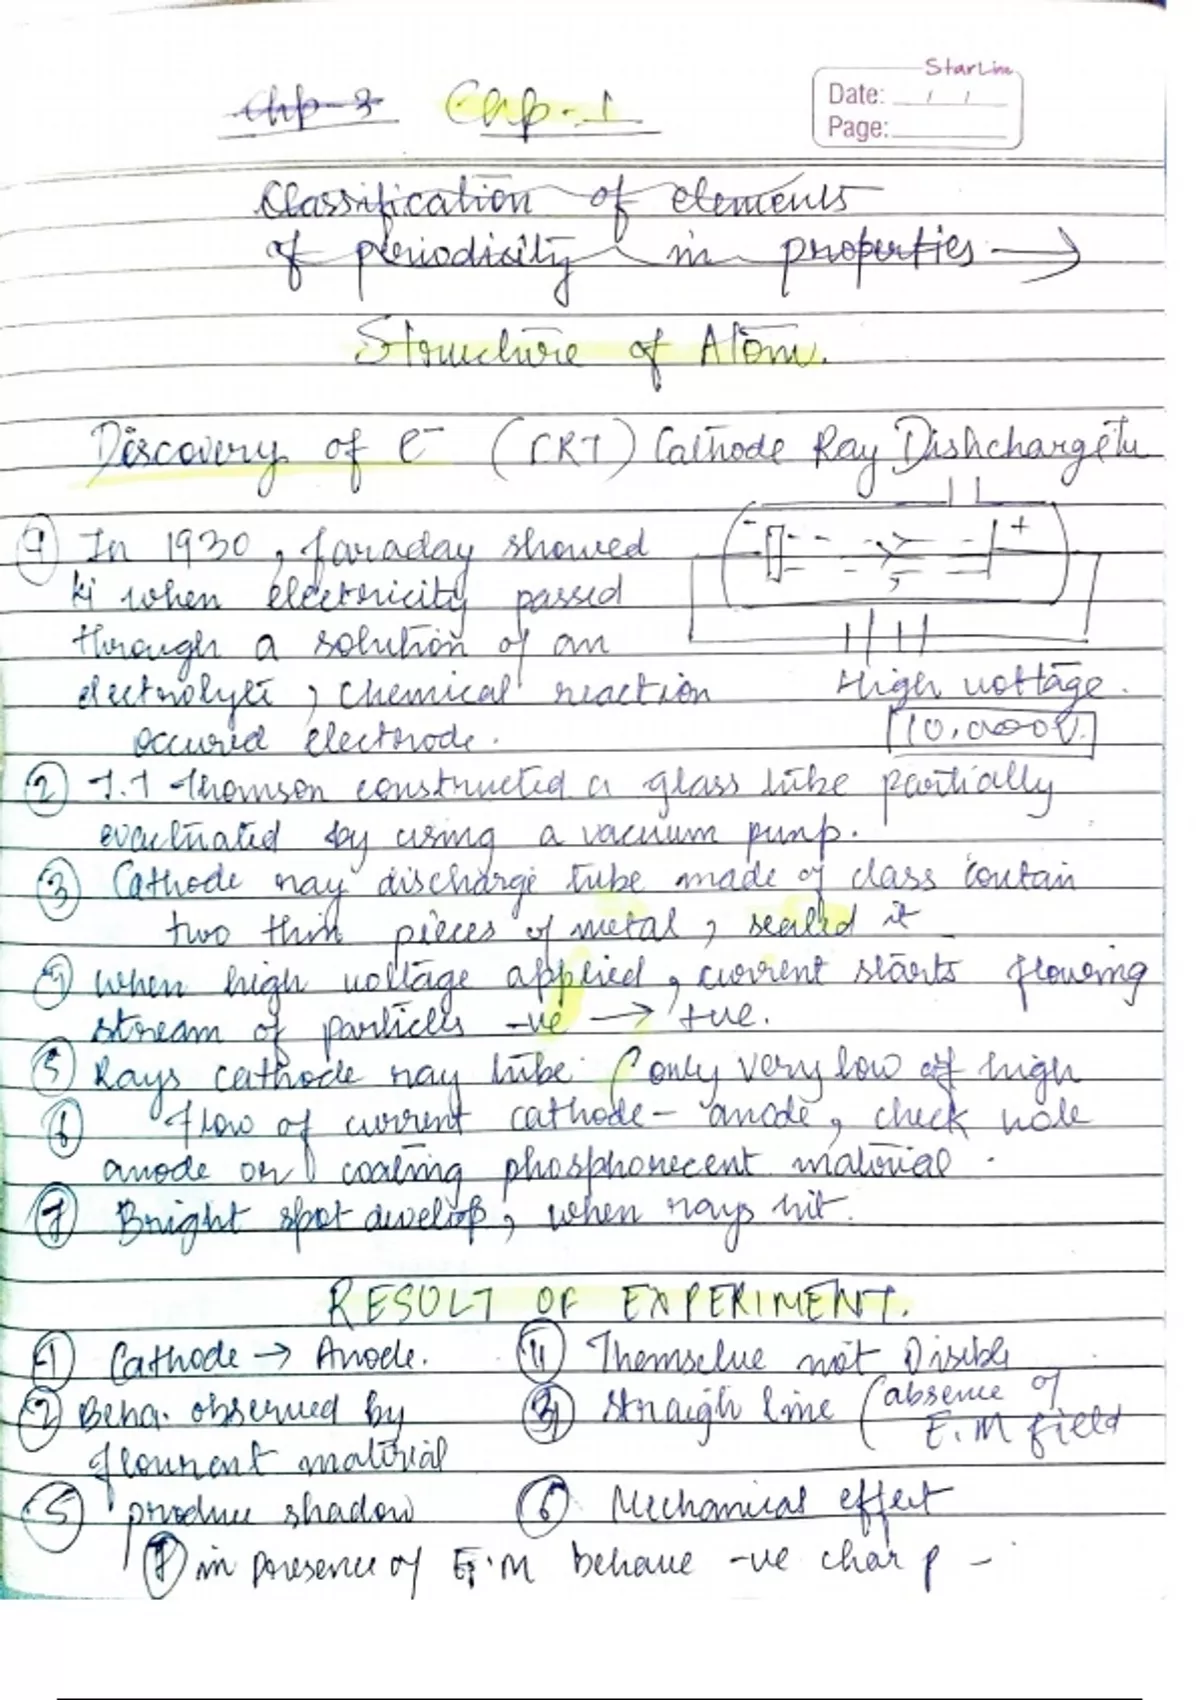 StarLine
Date: / /
Page:
Chp-3 Chp-1
Classification of elements
of periodicity in properties
Structure of Atom.
Discovery of e⁻ (CRT) Cathode Ray Dishchargetu
① In 1930, faraday showed
ki when electricity passed
through a solution of an
electrolyte, chemical reaction
occured electrode.
- +
High voltage.
10,000V.
② J.J Thomson constructed a glass tube partially
evactuated by using a vacuum pump.
③ Cathode ray discharge tube made of class contain
two thin pieces of metal, sealed it
④ when high voltage applied, current starts flowing
stream of particles -ve → +ve.
⑤ Rays cathode ray tube (only very low of high
⑥ flow of current cathode - anode, check hole
anode on coating phosphorecent material.
⑦ Bright spot develop, when rays hit.
RESULT OF EXPERIMENT.
① Cathode → Anode.
④ Themselve not Visible
② Beha. observed by
flourent material
③ straigh line (absence of
E.M field
⑤ produce shadow
⑥ Mechanical effect
⑦ in presence of E.M behave -ve char p -